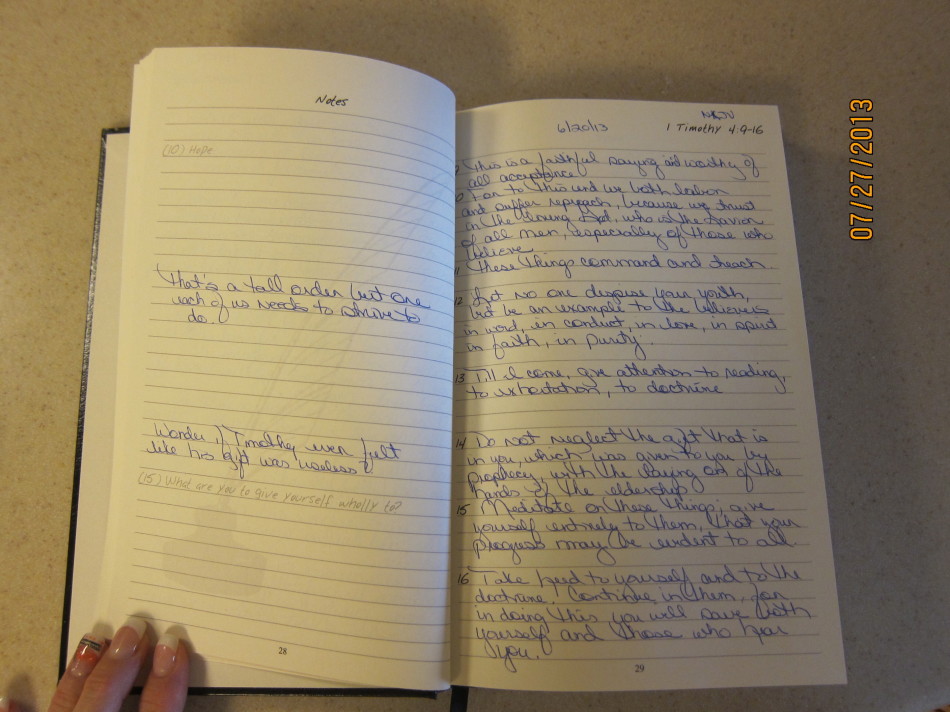 Notes
(10) Hope
That's a tall order but one
each of us needs to strive to
do.
Wonder if Timothy ever felt
like his gift was useless?
(15) What are you to give yourself wholly to?
28
NKJV
6/20/13
1 Timothy 4:9-16
9 This is a faithful saying and worthy of
all acceptance
10 For to this end we both labor
and suffer reproach, because we trust
in the living God, who is the Savior
of all men, especially of those who
believe.
11 These things command and teach.
12 Let no one despise your youth,
but be an example to the believers
in word, in conduct, in love, in spirit
in faith, in purity.
13 Till I come, give attention to reading,
to exhortation, to doctrine
14 Do not neglect the gift that is
in you, which was given to you by
prophecy with the laying on of the
hands of the eldership
15 Meditate on these things; give
yourself entirely to them, that your
progress may be evident to all
16 Take heed to yourself and to the
doctrine. Continue in them, for
in doing this you will save both
yourself and those who hear
you.
29
07/27/2013